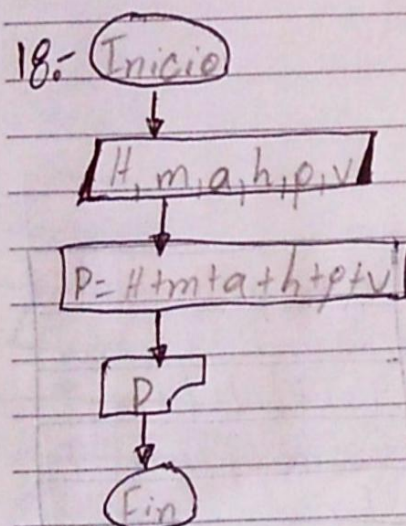 18.- Inicio
H, m, a, h, p, v
P= H+m+a+h+p+v
P
Fin